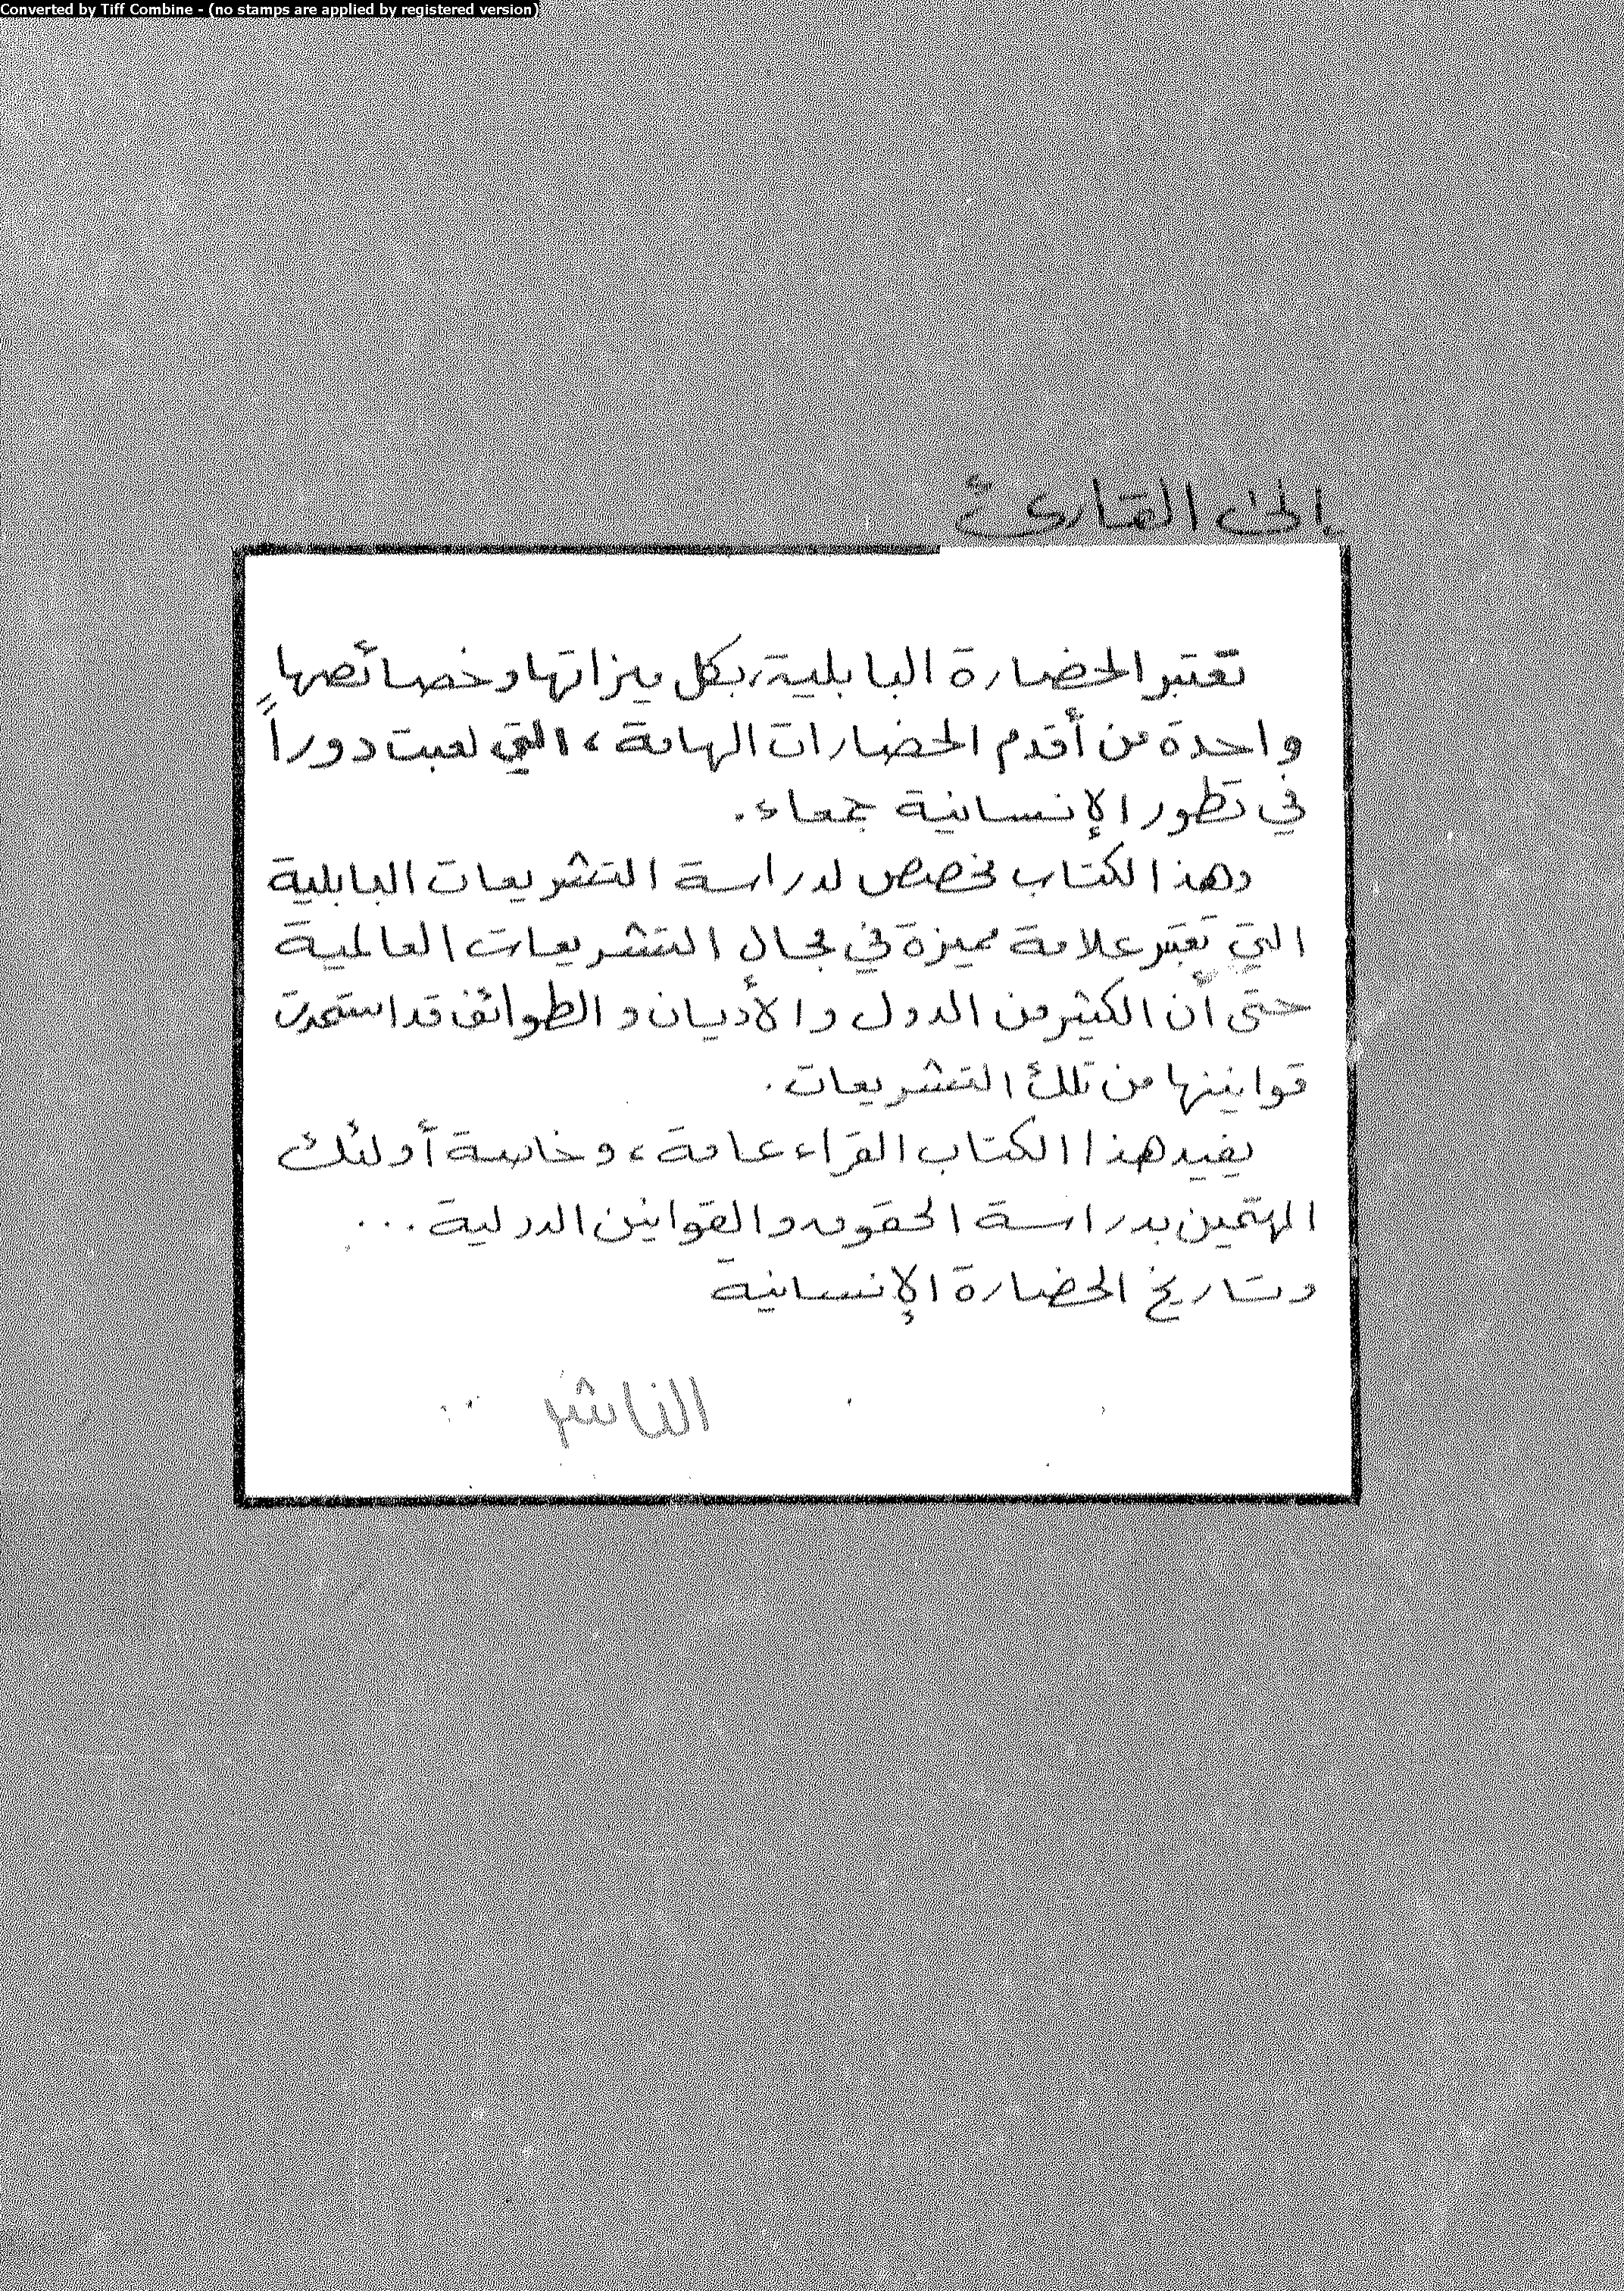 Converted by Tiff Combine - (no stamps are applied by registered version)
إلى القارئ
تعتبر الحضارة البابلية، بكل ميزاتها وخصائصها
واحدة من أقدم الحضارات الهامة، التي لعبت دوراً
في تطور الإنسانية جمعاء.
وهذا الكتاب مخصص لدراسة التشريعات البابلية
التي تعتبر علامة مميزة في مجال التشريعات العالمية
حتى أن الكثير من الدول والأديان والطوائف قد استمدت
قوانينها من تلك التشريعات.
يفيد هذا الكتاب القراء عامة، وخاصة أولئك
المهتمين بدراسة الحقوق والقوانين الدولية...
وتاريخ الحضارة الإنسانية
الناشر